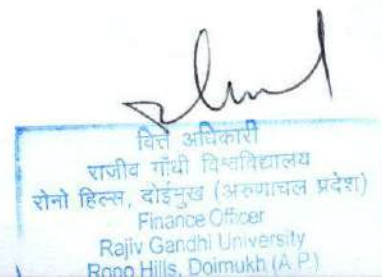 वित्त अधिकारी
राजीव गाँधी विश्वविद्यालय
रोनो हिल्स, दोईमुख (अरुणाचल प्रदेश)
Finance Officer
Rajiv Gandhi University
Rono Hills, Doimukh (A.P.)